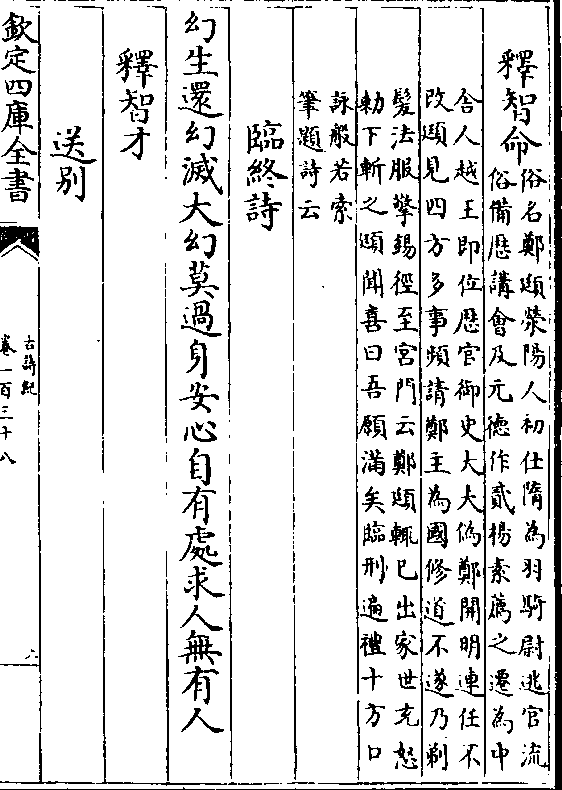 釋智命
俗名鄭頲滎陽人初仕隋為羽騎尉逃官流
俗備歷講會及元德作貳楊素薦之遷為中
舍人越王即位歷官御史大大偽鄭開明連任不
改頲見四方多事頻請鄭主為國修道不遂乃剃
髮法服擎錫徑至宮門云鄭頲輒已出家世充怒
勅下斬之頲聞喜曰吾願滿矣臨刑遍禮十方口
詠般若索
筆題詩云
臨終詩
幻生還幻滅大幻莫過身安心自有處求人無有人
釋智才
送別
欽定四庫全書
古詩紀
卷一百三十八
六